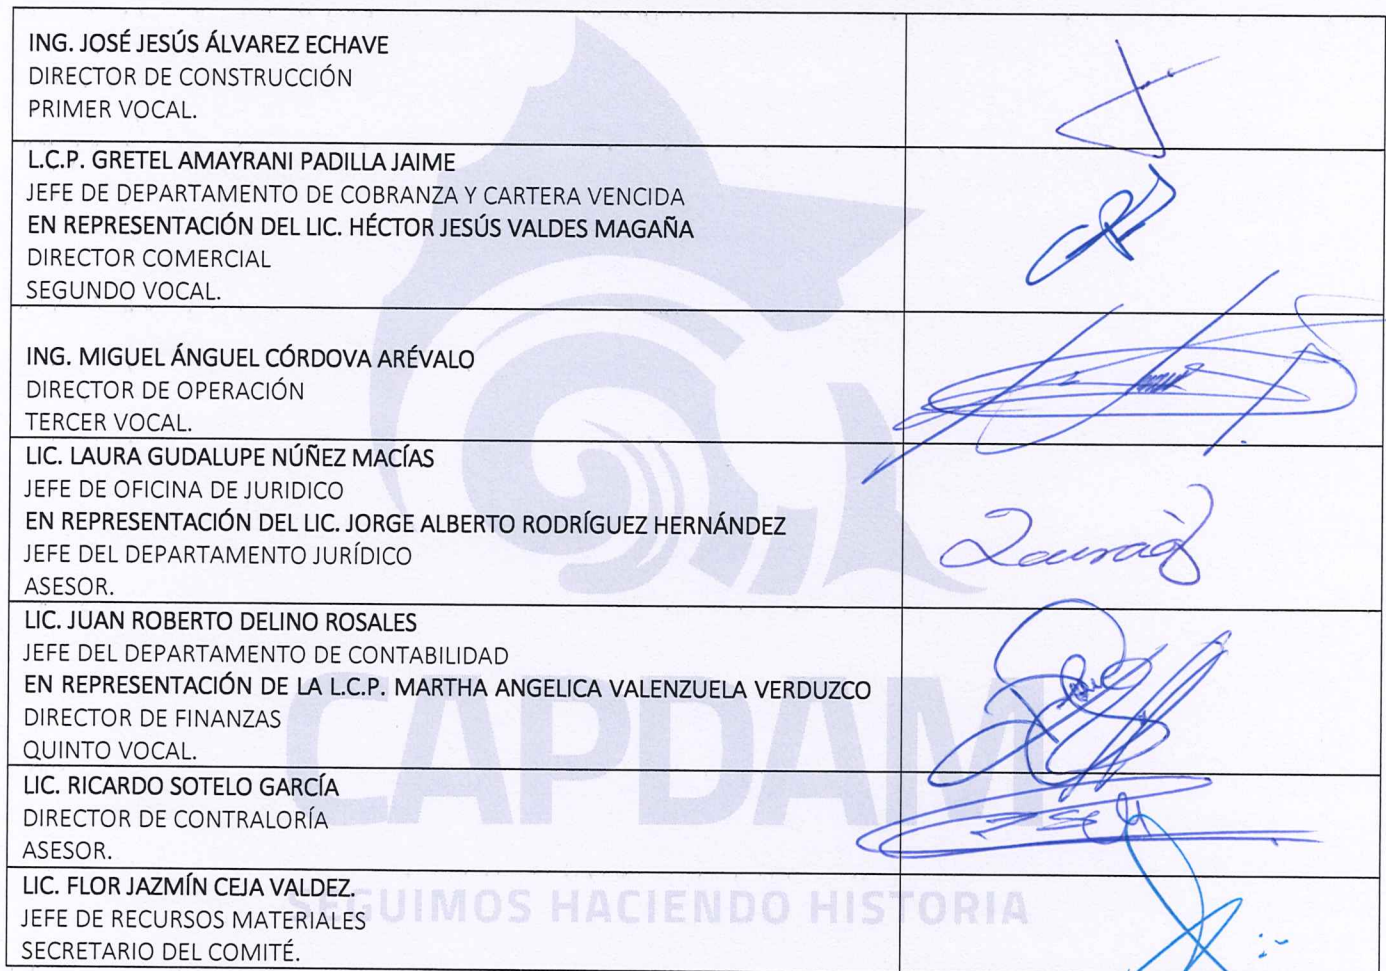 ING. JOSÉ JESÚS ÁLVAREZ ECHAVE
DIRECTOR DE CONSTRUCCIÓN
PRIMER VOCAL.
L.C.P. GRETEL AMAYRANI PADILLA JAIME
JEFE DE DEPARTAMENTO DE COBRANZA Y CARTERA VENCIDA
EN REPRESENTACIÓN DEL LIC. HÉCTOR JESÚS VALDES MAGAÑA
DIRECTOR COMERCIAL
SEGUNDO VOCAL.
ING. MIGUEL ÁNGUEL CÓRDOVA ARÉVALO
DIRECTOR DE OPERACIÓN
TERCER VOCAL.
LIC. LAURA GUDALUPE NÚÑEZ MACÍAS
JEFE DE OFICINA DE JURIDICO
EN REPRESENTACIÓN DEL LIC. JORGE ALBERTO RODRÍGUEZ HERNÁNDEZ
JEFE DEL DEPARTAMENTO JURÍDICO
ASESOR.
LIC. JUAN ROBERTO DELINO ROSALES
JEFE DEL DEPARTAMENTO DE CONTABILIDAD
EN REPRESENTACIÓN DE LA L.C.P. MARTHA ANGELICA VALENZUELA VERDUZCO
DIRECTOR DE FINANZAS
QUINTO VOCAL.
CAPDAM
LIC. RICARDO SOTELO GARCÍA
DIRECTOR DE CONTRALORÍA
ASESOR.
LIC. FLOR JAZMÍN CEJA VALDEZ.
SEGUIMOS HACIENDO HISTORIA
JEFE DE RECURSOS MATERIALES
SECRETARIO DEL COMITÉ.